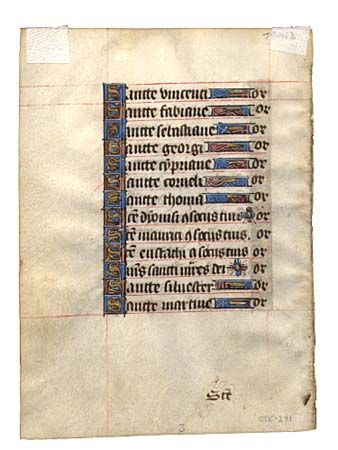 Sancte vincenti or
Sancte fabiane or
Sancte sebastiane or
Sancte georgi or
Sancte cypriane or
Sancte corneli or
Sancte thoma or
Scē dyonisi cū sociis tuis or
Scē maurici cū sociis tuis. or
Scē eustachi cū sociis tuis or
Om̄s sancti mr̄es dei or
Sancte silvester or
Sancte martine or
Scē
3